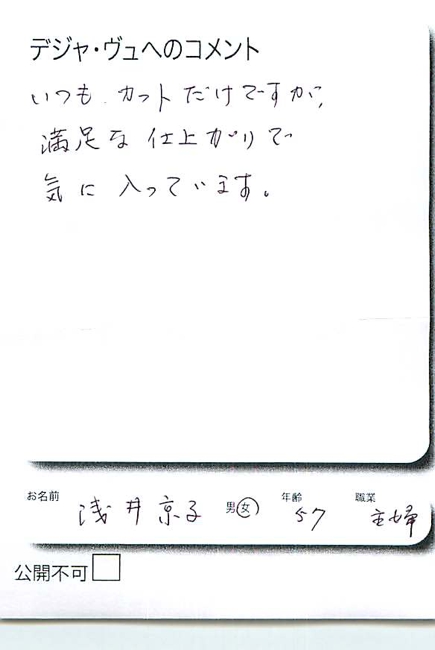 デジャ・ヴュへのコメント
いつも、カットだけですが、
満足な仕上がりで
気に入っています。
お名前 浅井京子 男・女 年齢 57 職業 主婦
公開不可